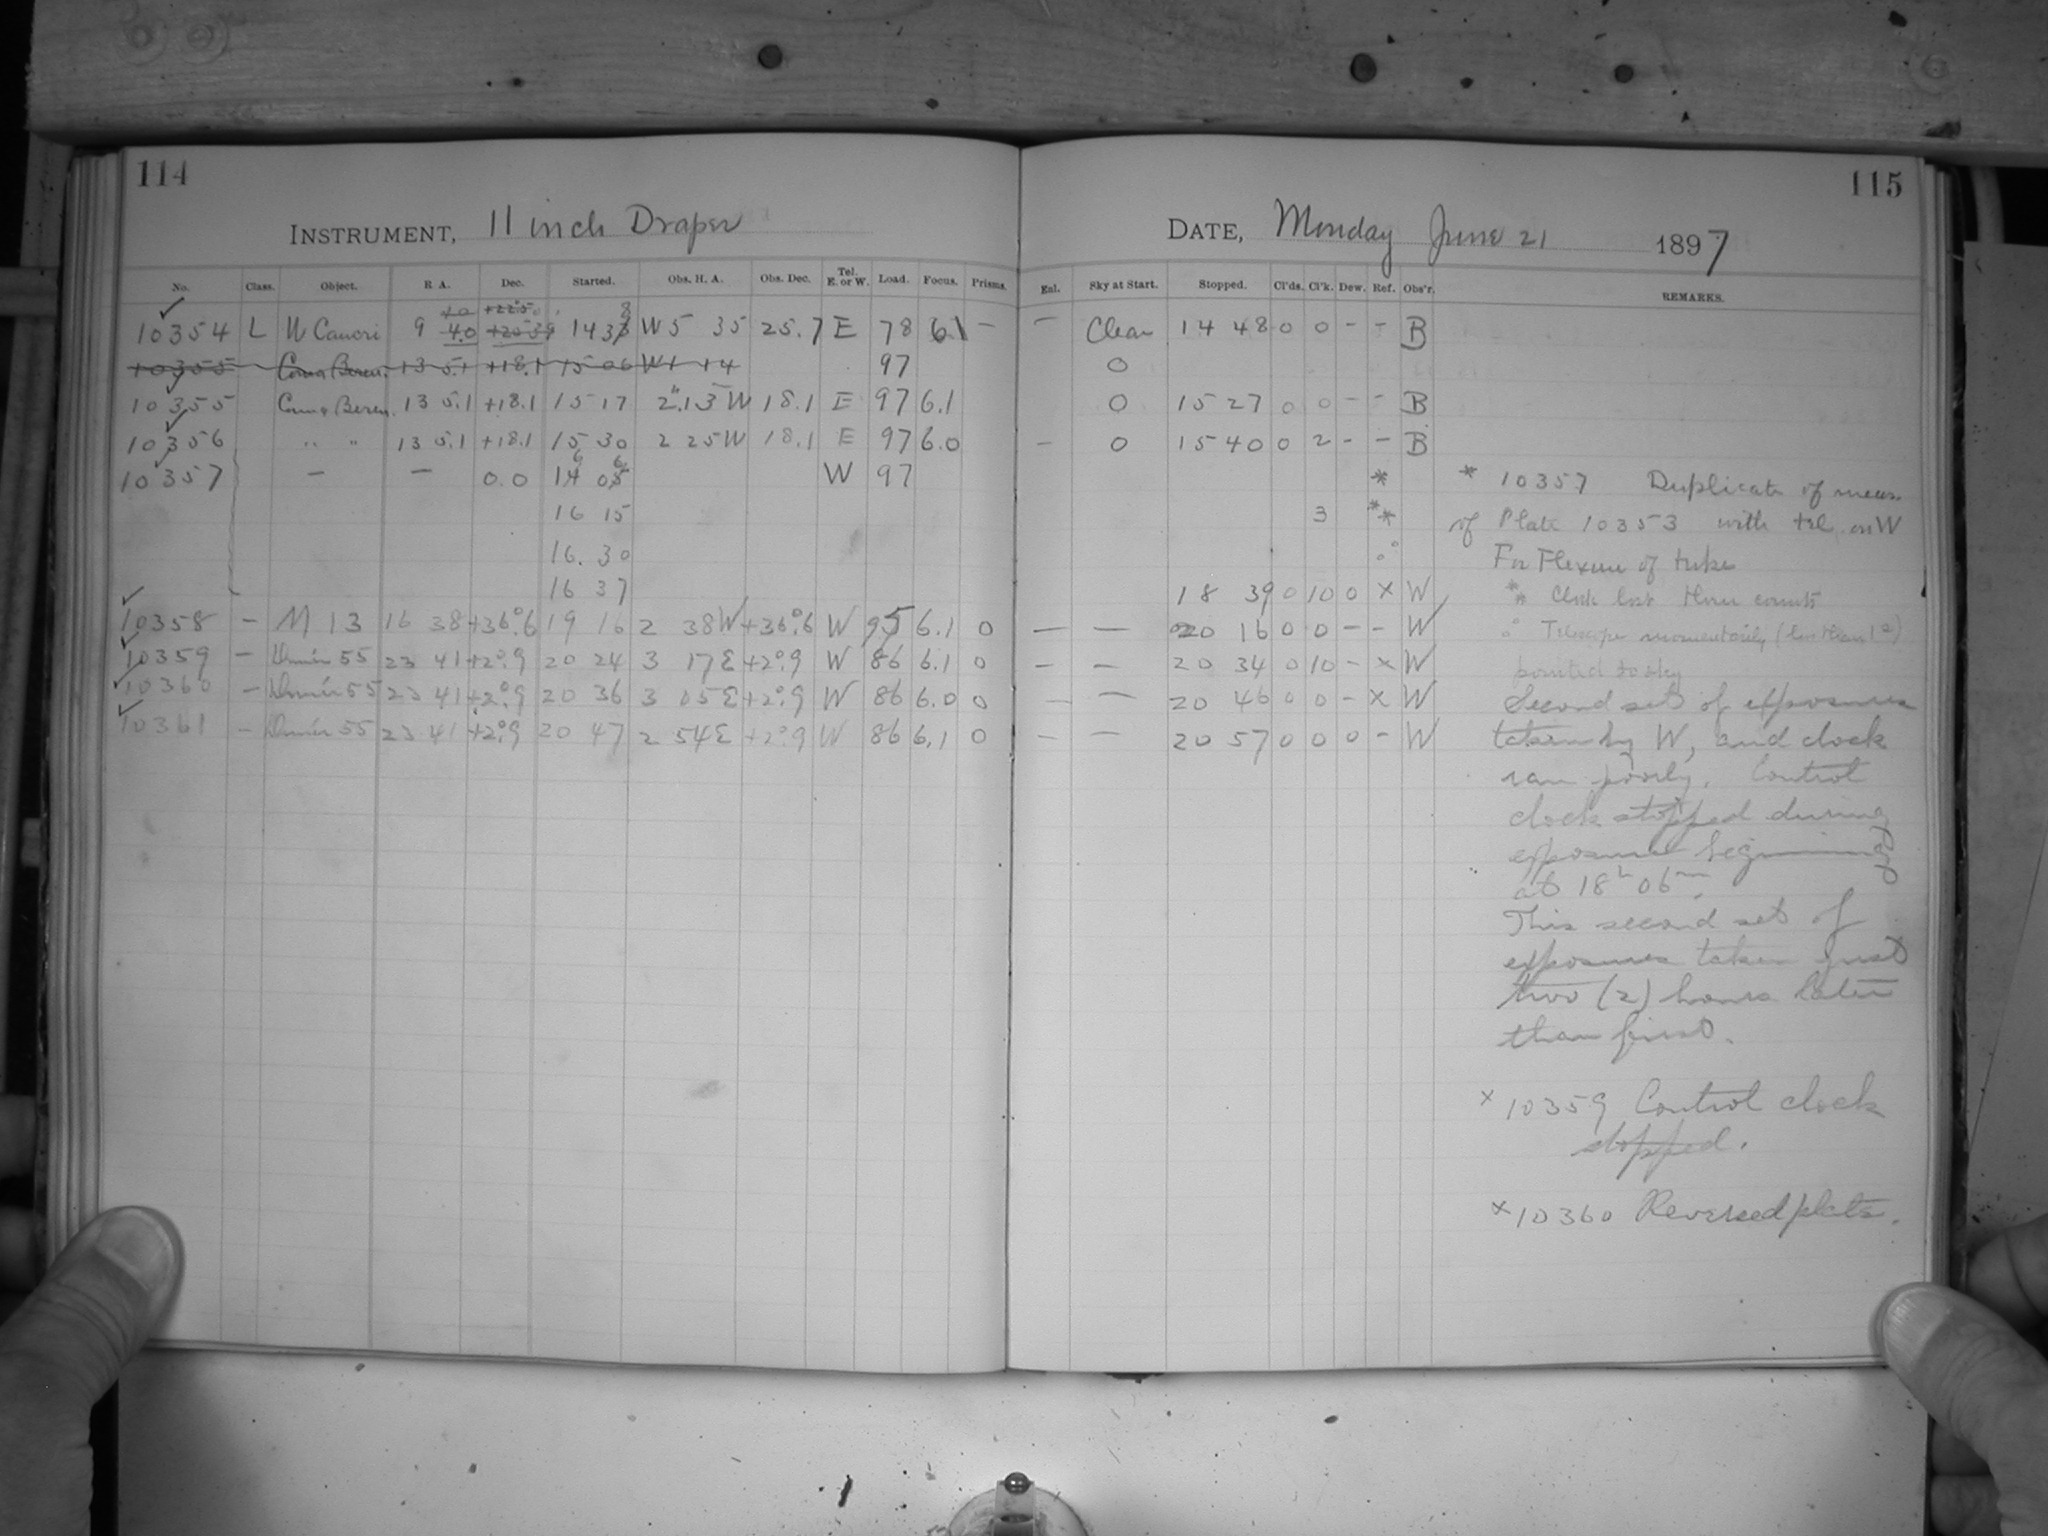 114
INSTRUMENT, 11 inch Draper
No. Class. Object. R A. Dec. Started. Obs. H. A. Obs. Dec. Tel. E. or W. Load. Focus. Prisms.
10354 L U Cancri 9 40 14 38 W 5 35 25.7 E 78 6.1 –
10355 Coma Beren. 13 5.1 +18.1 15 06 W 1 14 97
10355 Coma Beren. 13 5.1 +18.1 15 17 2 13 W 18.1 E 97 6.1
10356 " " 13 5.1 +18.1 15 30 2 25 W 18.1 E 97 6.0
10357 – – 0.0 16 06 W 97
16 15
16. 30
16 37
10358 – M 13 16 38 +36°.6 19 16 2 38 W +36°.6 W 95 6.1 0
10359 – Dunér 55 23 41 +2°.9 20 24 3 17 E +2°.9 W 86 6.1 0
10360 – Dunér 55 23 41 +2°.9 20 36 3 05 E +2°.9 W 86 6.0 0
10361 – Dunér 55 23 41 +2°.9 20 47 2 54 E +2°.9 W 86 6.1 0
115
DATE, Monday June 21 1897
Enl. Sky at Start. Stopped. Cl'ds. Cl'k. Dew. Ref. Obs'r. REMARKS.
– Clear 14 48 0 0 – – B
0
0 15 27 0 0 – – B
– 0 15 40 0 2 – – B
*
3 **
18 39 0 10 0 x W
– – 20 16 0 0 – – W
– – 20 34 0 10 – x W
– – 20 46 0 0 – x W
– – 20 57 0 0 0 – W
* 10357 Duplicate of meas.
of Plate 10353 with tel. on W
For Flexure of tube
** Clock lost three counts
Telescope momentarily (less than 1s)
pointed to sky
Second set of exposures
taken by W, and clock
ran poorly. Control
clock stopped during
exposure beginning
at 18h 06m.
This second set of
exposures taken just
two (2) hours later
than first.
x 10359 Control clock
stopped.
x 10360 Reversed plate.